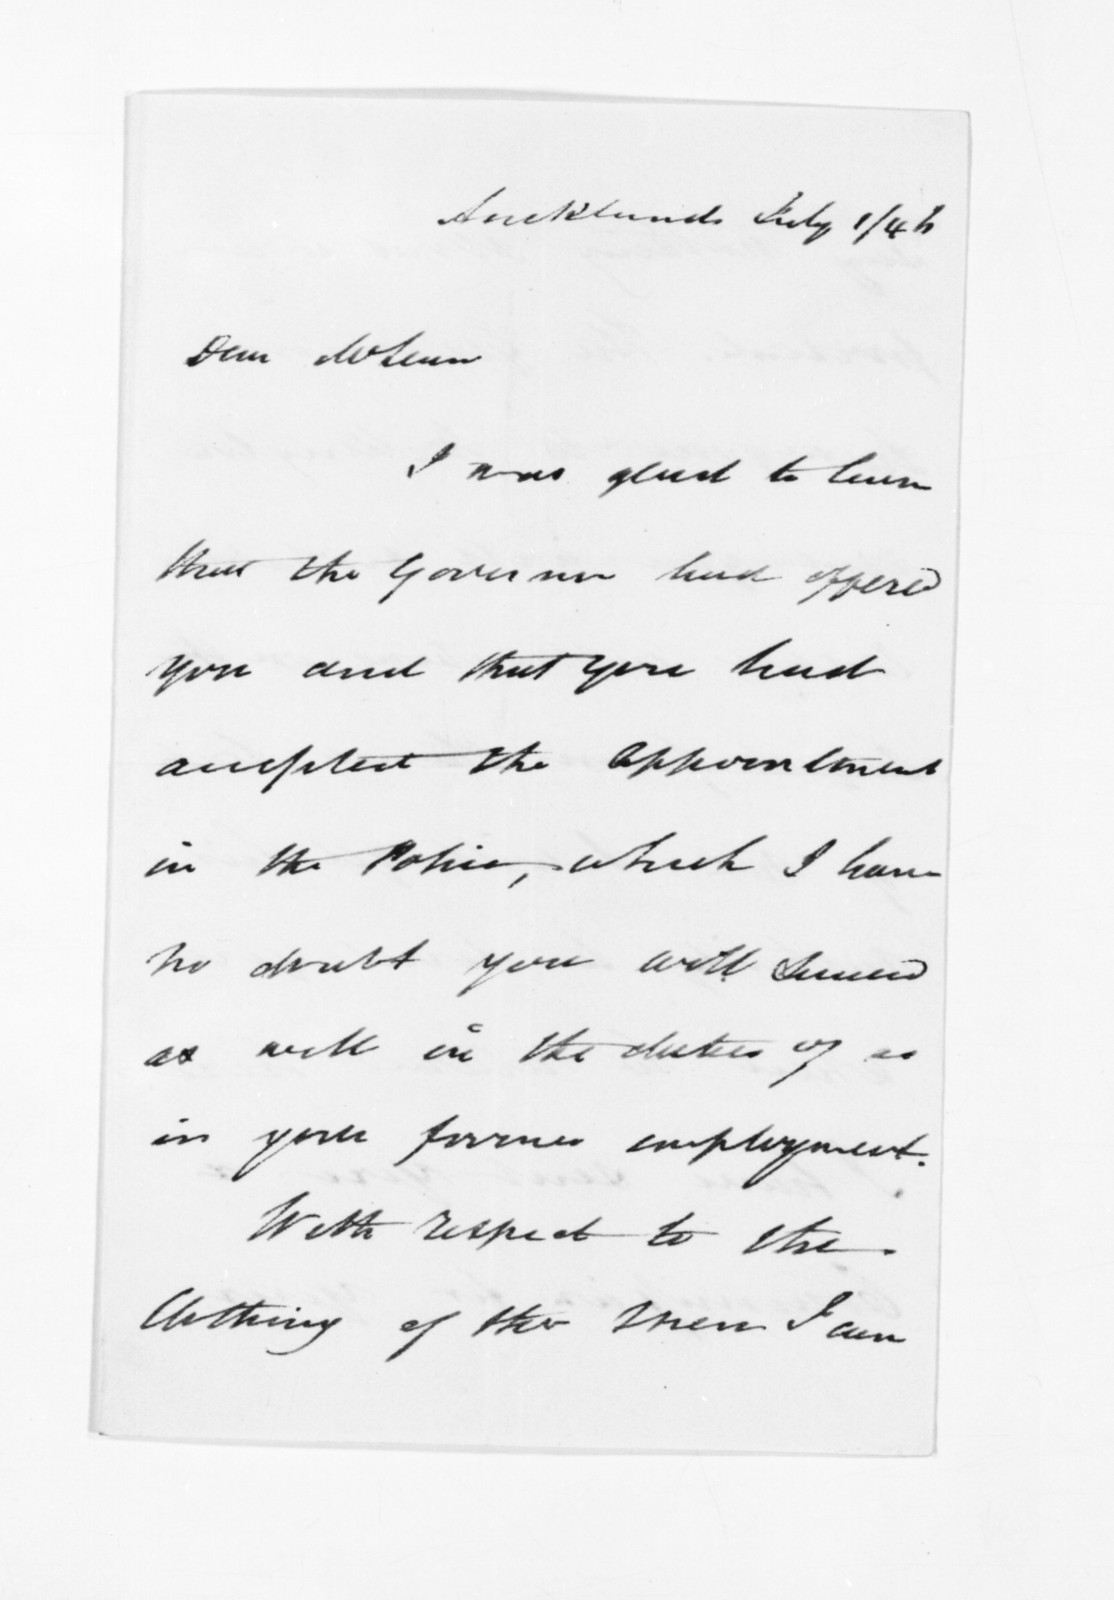 Auckland July 1/46
Dear McLean
I was glad to learn
that the Governor had offered
you and that you had
accepted the appointment
in the Police, which I have
no doubt you will succeed
as well in the duties of as
in your former employment.
With respect to the
Clothing of the Men I can